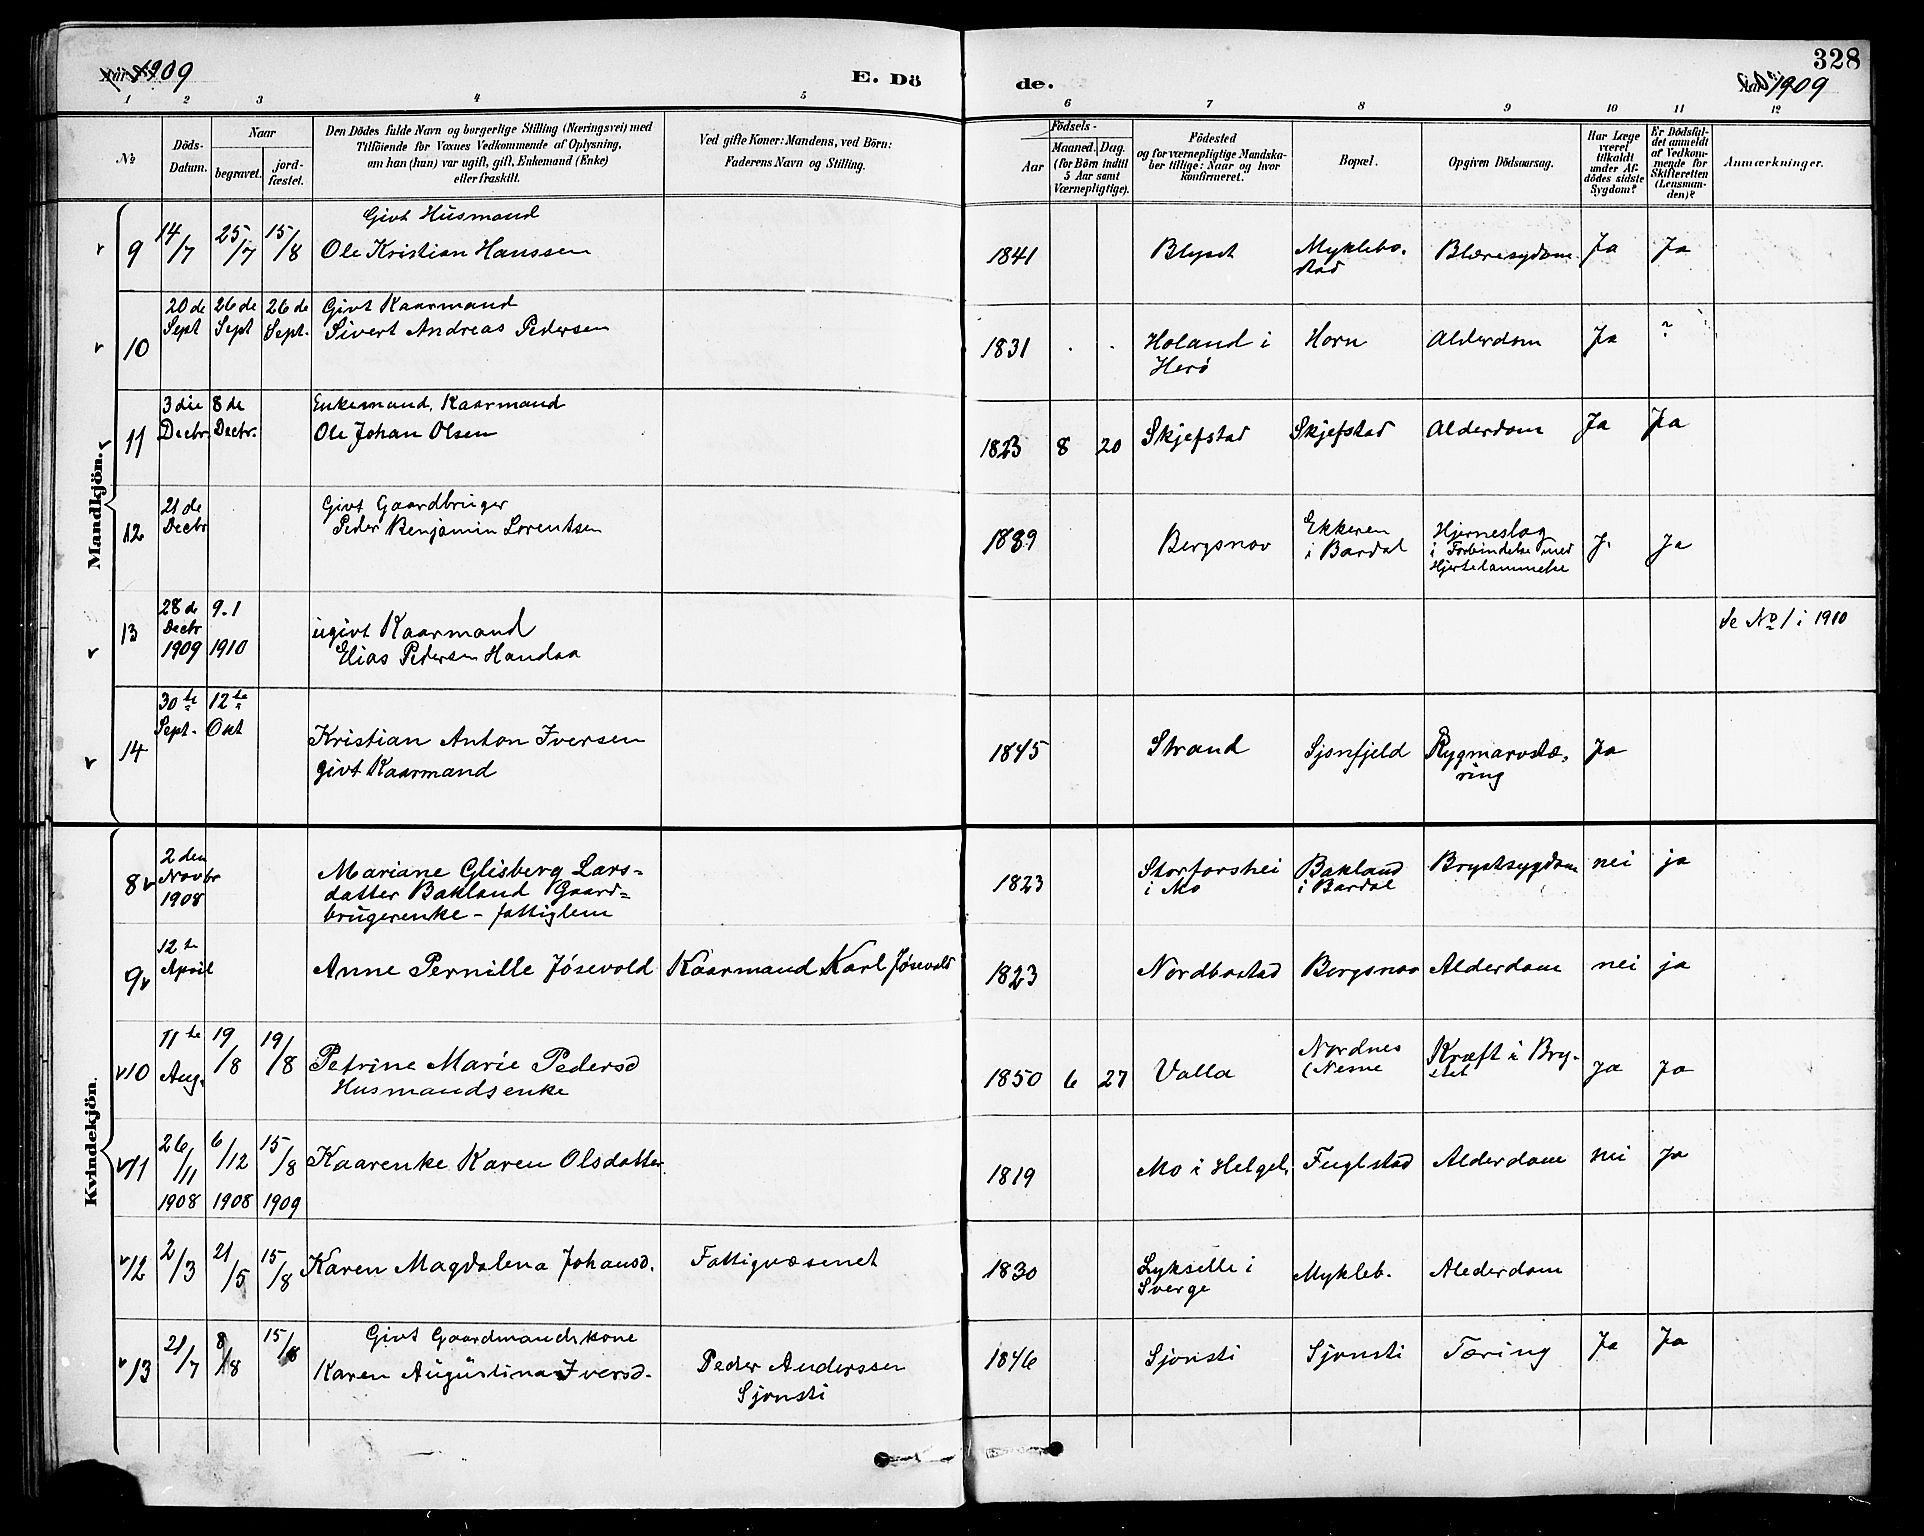 1909
E. Dö
de.
328
1909
1 2 3 4 5 6 7 8 9 10 11 12
№
Döds-
Datum.
Naar
begravet.
jord-
fæstet.
Den Dödes fulde Navn og borgerlige Stilling (Næringsvei) med
Tilföiende for Voxnes Vedkommende af Oplysning,
om han (hun) var ugift, gift, Enkemand (Enke)
eller fraskilt.
Ved gifte Koner: Mandens, ved Börn:
Faderens Navn og Stilling.
Födsels-
Aar
Maaned. Dag.
(for Börn indtil
5 Aar samt
Værnepligtige).
Födested
og for værnepligtige Mandska-
ber tillige: Naar og hvor
konfirmeret.
Bopæl.
Opgiven Dödsaarsag.
Har Læge
været
tilkaldt
under Af-
dödes sidste
Sygdom?
Er Dödsfal-
det anmeldt
af Vedkom-
mende for
Skifteretten
(Lensman-
den)?
Anmærkninger.
Mandkjön.
9 14/7 25/7 15/8 Givt Husmand
Ole Kristian Hanssen 1841 Blyset Myklebo-
stad Blæresygdom Ja Ja
10 20de Sept 26de Sept 26de Sept. Givt Kaarmand
Sivert Andreas Pedersen 1831 . . Holand i
Herö Horn Alderdom Ja ?
11 3die Decbr. 8de Decbr. Enkemand, Kaarmand
Ole Johan Olsen 1823 8 20 Skjefstad Skjefstad Alderdom Ja Ja
12 21de Decbr Givt Gaardbruger
Peder Benjamin Lorentsen 1839 Bergsnov Ekkeren
i Bardal Hjerneslag
i Forbindelse med
Hjertelammelse J. Ja
13 28de Decbr 1909 9.1 1910 ugivt Kaarmand
Elias Pedersen Handaa se No 1 i 1910
14 30te Sept. 12te Okt Kristian Anton Iversen
givt Kaarmand 1845 Strand Sjonfjeld Rygmarvstæ-
ring Ja
Kvindekjön.
8 2den Novbr 1908 Mariane Glisberg Lars-
datter Bakland Gaard-
brugerenke - fattiglem 1823 Storforshei
i Mo Bakland
i Bardal Brystsygdom nei ja
9 12te April Anne Pernille Jösevold Kaarmand Karl Jösevold 1823 Nordbostad Bergsnov Alderdom nei ja
10 11te Aug. 19/8 19/8 Petrine Marie Pedersd
Husmandsenke 1850 6 27 Valla Nordnes
i Nesne Kræft i Bry-
stet ja Ja
11 26/11 1908 6/12 1908 15/8 1909 Kaarenke Karen Olsdatter 1819 Mo i Helgel. Fuglstad Alderdom nei Ja
12 2/3 21/5 15/8 Karen Magdalena Johansd. Fattigvæsenet 1830 Lykselle i
Sverge Mykleb. Alederdom
13 21/7 8/8 15/8 Givt Gaardmandskone
Karen Augustina Iversd. Peder Anderssen
Sjonsti 1846 Sjonsti Sjonsti Tæring Ja Ja